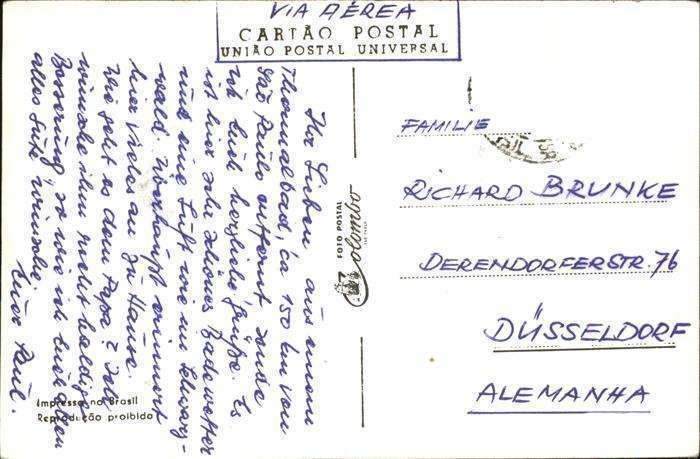 VIA AÉREA
CARTÃO POSTAL
UNIÃO POSTAL UNIVERSAL
Ihr Lieben aus einem
Thermalbad, ca 150 km von
São Paulo entfernt sende
ich Euch herzliche Grüße. Es
ist hier sehr schönes Badewetter
und eine Luft wie im Schwarz-
wald. Überhaupt erinnert
hier vieles an zu Hause.
Wie geht es dem Papa? Ich
wünsche ihm recht baldige
Besserung so wie ich Euch allen
alles Gute wünsche
Euer Paul.
FOTO POSTAL
Colombo
FAMILIE
RICHARD BRUNKE
DERENDORFERSTR. 76
DÜSSELDORF
ALEMANHA
Impresso no Brasil
Reprodução proibida